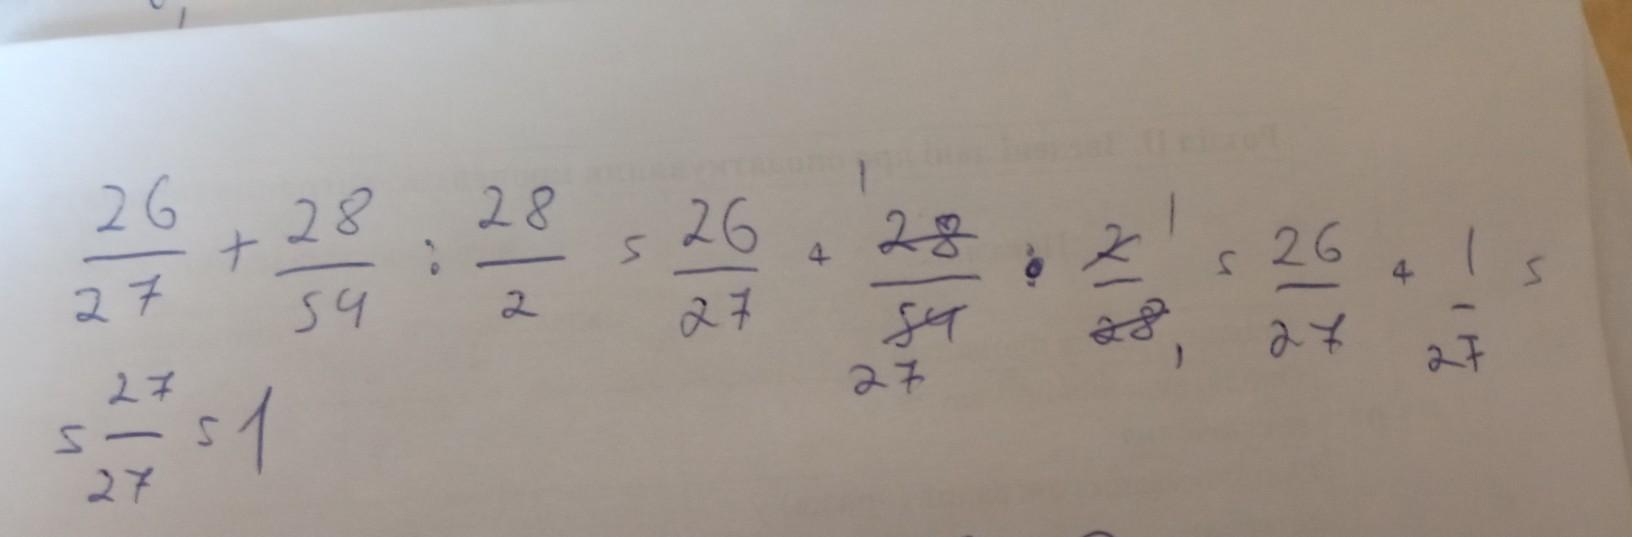 26/27 + 28/54 : 28/2 = 26/27 + 28/54 · 2/28 = 26/27 + 1/27 =
= 27/27 = 1